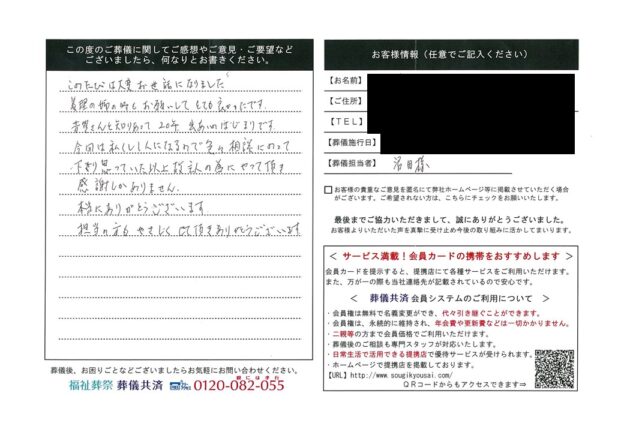 この度のご葬儀に関してご感想やご意見・ご要望など
ございましたら、何なりとお書きください。
このたびは大変お世話になりました
義理の姉の時もお願いして とても良かったです
さんと知りあって 20年 出あいのはじまりです
今回は私くし1人になるので 相談にのって
下さり思っていた以上 故人の為にやって頂き
感謝しかありません。
本当にありがとうございます
担当の方も やさしくして頂きありがとうございます
葬儀後、お困りごとなどございましたらお気軽にお問い合わせください。
福祉葬祭 葬儀共済 0120-082-055
お客様情報(任意でご記入ください)
【お名前】
【ご住所】
【TEL】
【葬儀施行日】
【葬儀担当者】 沼田様
お客様の貴重なご意見を匿名にて弊社ホームページ等に掲載させていただく場合
がございます。ご希望されない方は、こちらにチェックをお願いいたします。
最後までご協力いただきまして、誠にありがとうございました。
お客様よりいただいた声を真摯に受け止め今後の取り組みに活かしてまいります。
< サービス満載!会員カードの携帯をおすすめします >
会員カードを提示すると、提携店にて各種サービスをご利用いただけます。
また、万が一の際も当社連絡先が記載されているので安心です。
< 葬儀共済 会員システムのご利用について >
・会員権は無料で名義変更ができ、代々引き継ぐことができます。
・会員権は、永続的に維持され、年会費や更新費などは一切かかりません。
・二親等の方まで会員価格でご利用いただけます。
・葬儀後のご相談も専門スタッフが対応いたします。
・日常生活で活用できる提携店で優待サービスが受けられます。
・ホームページで提携店を掲載しております。
【URL】http://www.sougikyousai.com/
QRコードからもアクセスできます⇒